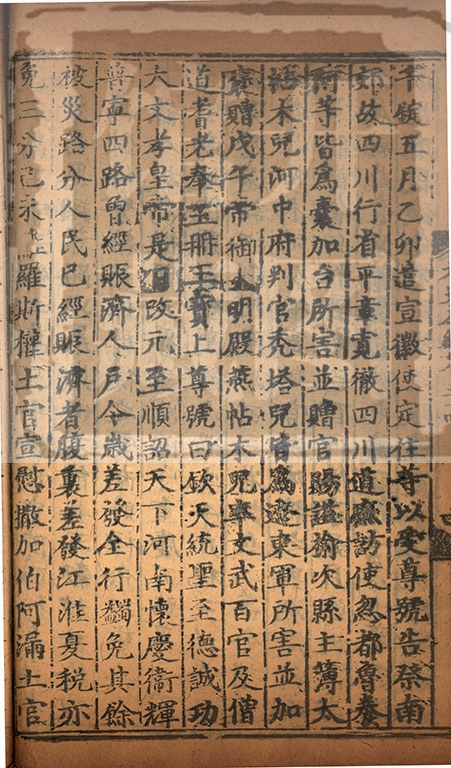 千錠五月乙卯遣宣徽使定住等以受尊號告祭南
郊故四川行省平章寬徹四川道廉訪使忽都魯養
等皆爲囊加台所害並贈官賜諡榆次縣主簿太
帖木兒河中府判官禿塔兒皆爲遼東軍所害並加
褒贈戊午帝御大明殿燕帖木兒率文武百官及僧
道耆老奉玉冊玉寶上尊號曰欽天統聖至德誠功
大文孝皇帝是日改元至順詔天下河南懷慶衞輝
普寧四路曾經賑濟人戶今歲差發全行蠲免其餘
被災路分人民已經賑濟者腹裏差發江淮夏稅亦
免三分己未羅斯權土官宣慰撒加伯阿漏土官